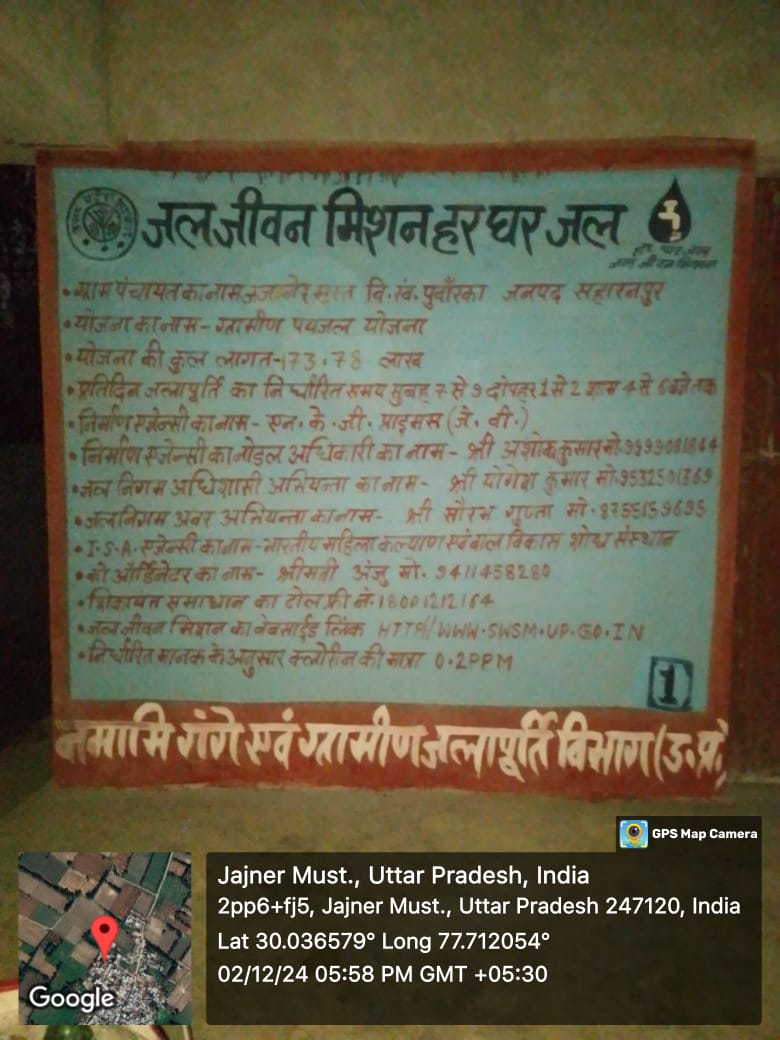 जल जीवन मिशन हर घर जल
हर घर जल
जल जीवन मिशन
• ग्राम पंचायत का नाम जजनेर मुस्त वि. खं. पुवाँरका जनपद सहारनपुर
• योजना का नाम - ग्रामीण पयजल योजना
• योजना की कुल लागत - 173.78 लाख
• प्रतिदिन जलापूर्ति का निर्धारित समय सुबह 7 से 9 दोपहर 1 से 2 शाम 4 से 6 बजे तक
• निर्माण एजेन्सी का नाम - एन. के. जी. प्राइमस (जे. वी.)
• निर्माण एजेन्सी का नोडल अधिकारी का नाम - श्री अशोक कुमार मो. 9999081844
• जल निगम अधिशासी अभियन्ता का नाम - श्री योगेश कुमार मो. 9532501369
• जल निगम अवर अभियन्ता का नाम - श्री सौरभ गुप्ता मो. 8755159695
• I.S.A. एजेन्सी का नाम - भारतीय महिला कल्याण एवं बाल विकास शोध संस्थान
• को ऑर्डिनेटर का नाम - श्रीमती अंजु मो. 9411458280
• शिकायत समाधान का टोल फ्री नं. 18001212164
• जल जीवन मिशन का वेबसाईड लिंक HTTP//WWW.SWSM.UP.GO.IN
• निर्धारित मानक के अनुसार क्लोरीन की मात्रा 0.2PPM
1
नमामि गंगे एवं ग्रामीण जलापूर्ति विभाग (उ.प्र.)
GPS Map Camera
Jajner Must., Uttar Pradesh, India
2pp6+fj5, Jajner Must., Uttar Pradesh 247120, India
Lat 30.036579° Long 77.712054°
02/12/24 05:58 PM GMT +05:30
Google